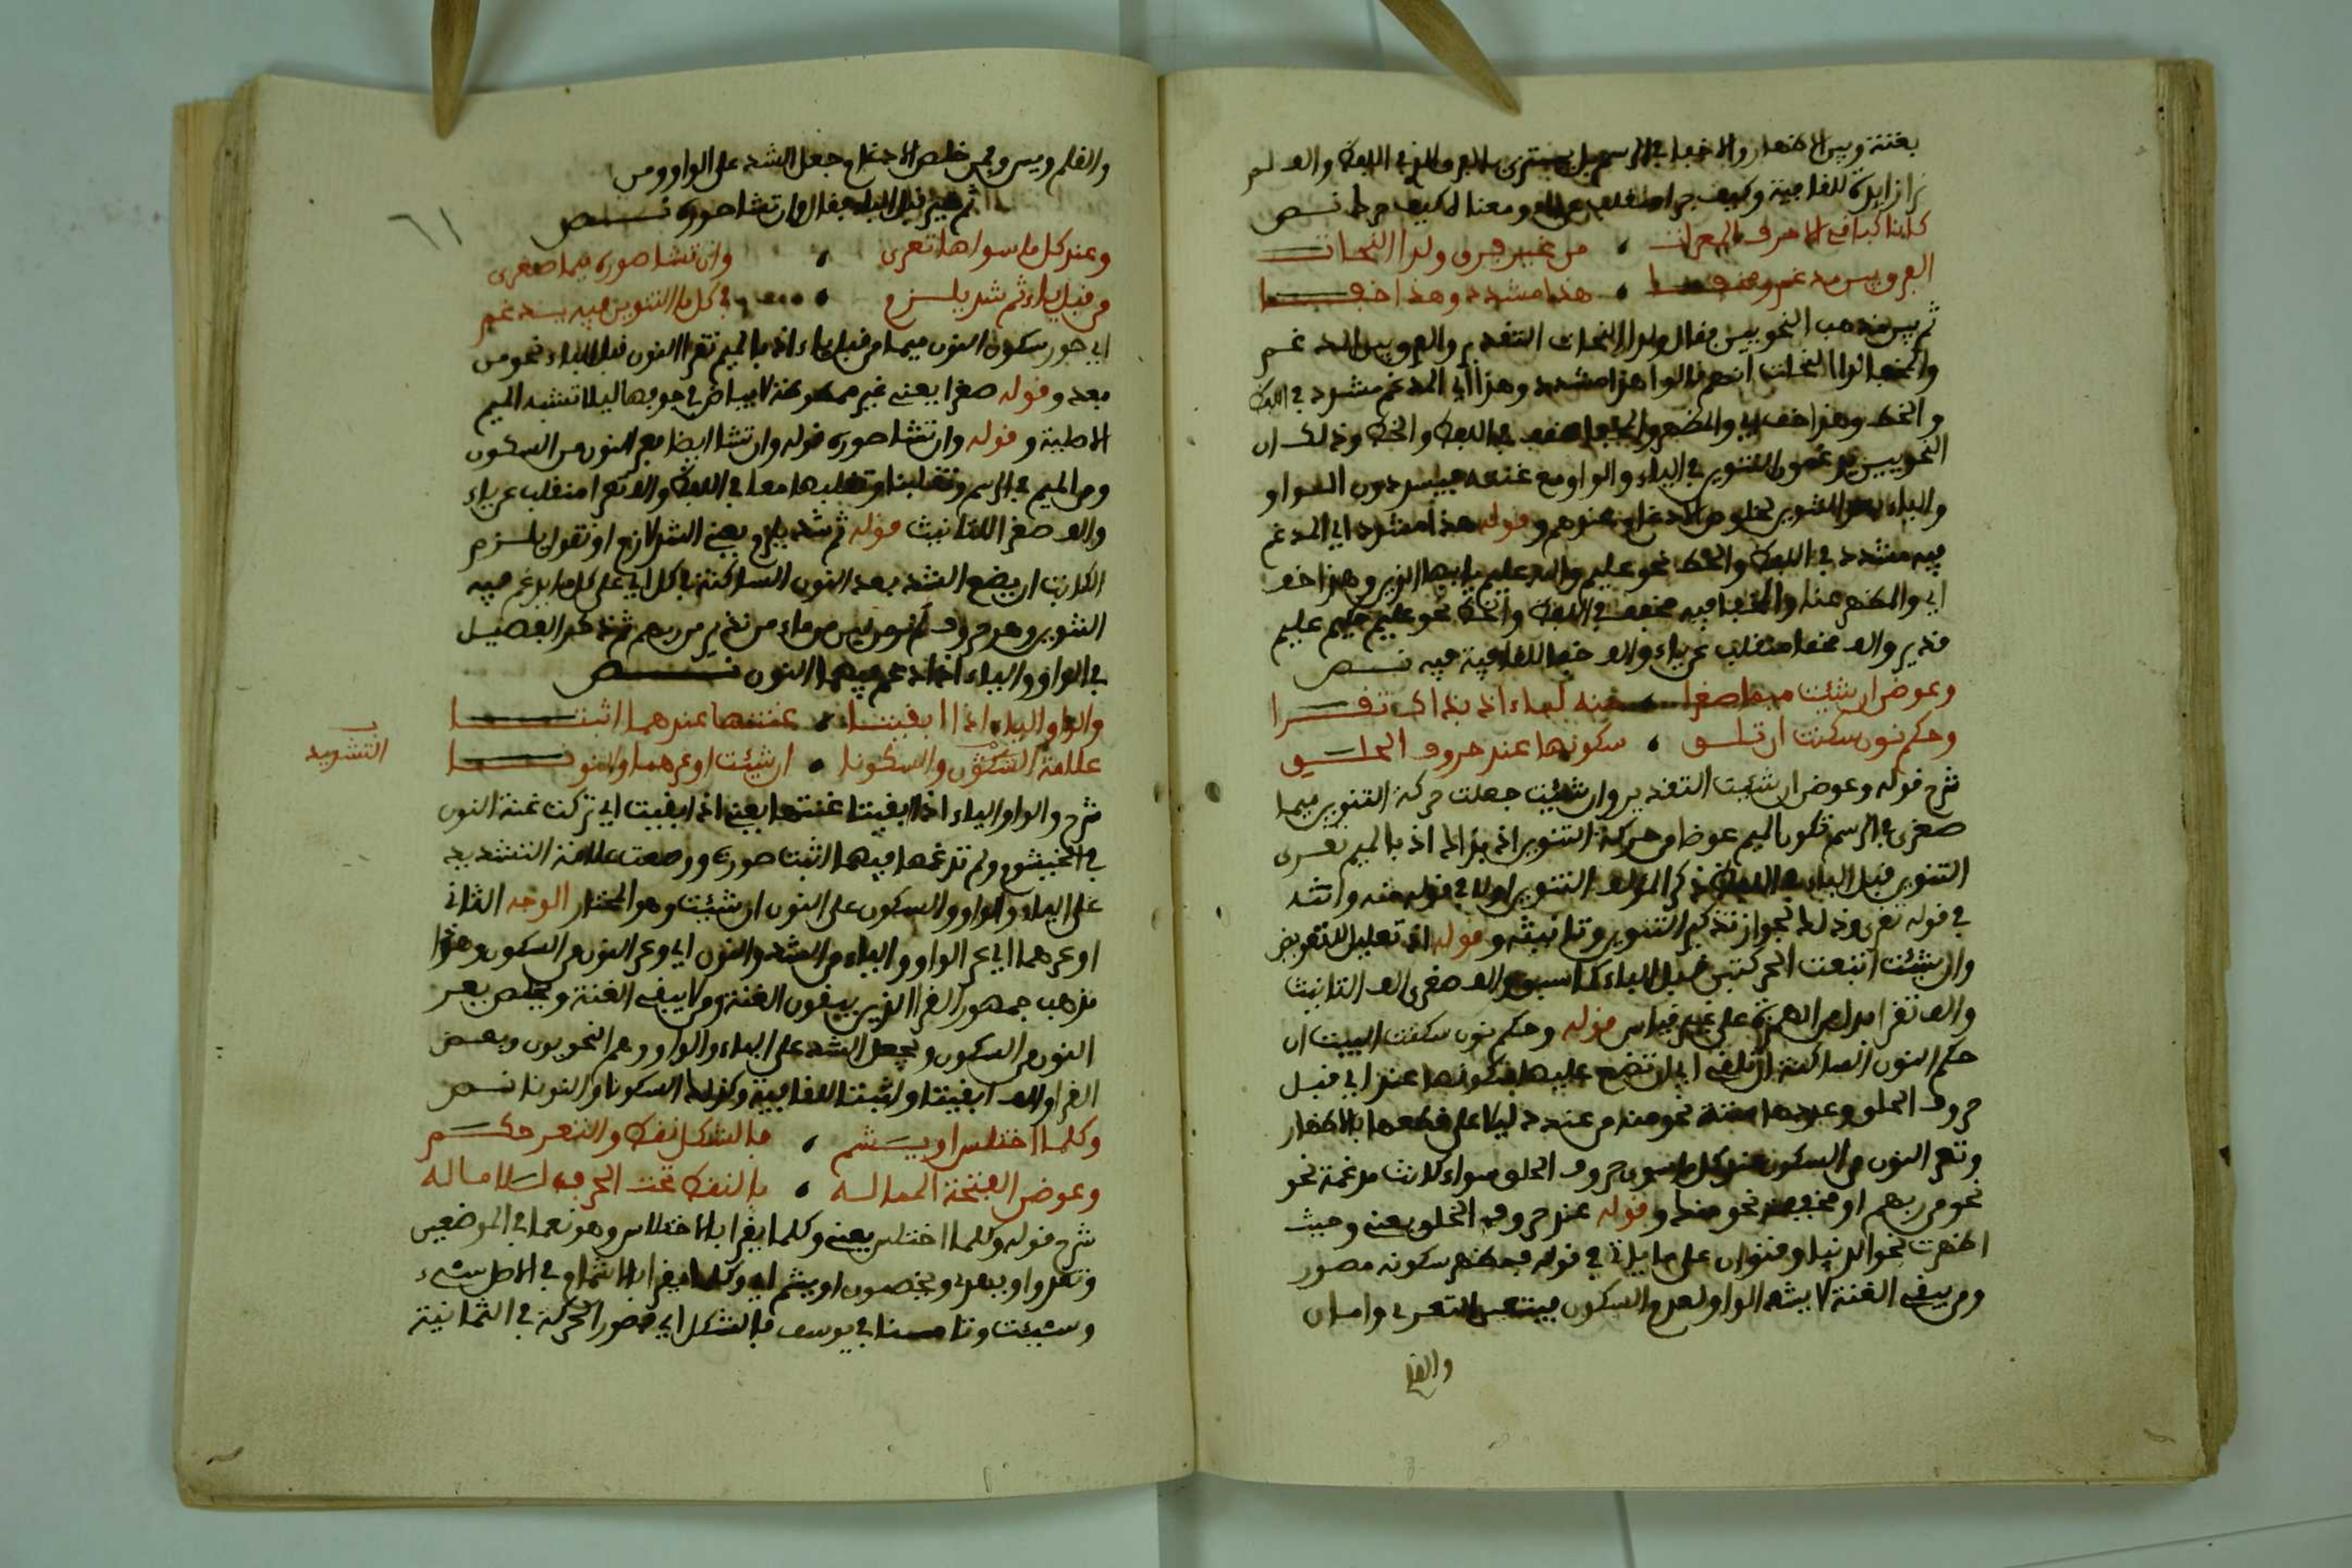 بغنة وبين الاظهار والاخفا في الرسم بل يستوي
زايدة للقافية وكيف جرا ومعناه كيف جرا نص
كذا كباقي الاحرف المعرات من غير فرق ولدا النحات
الفرق بين مدغم وما هذا مشدد وهذا خففا
ثم بين مذهب النحويين فقال ولدا النحات التقدير والفرق بين المدغم
والمخفا لدا النحات انهم قالوا هذا مشدد وهذا اي المدغم مشدد في اللفظ
والخط وهذا خفف اي والمظهر والمخفا مخفف في اللفظ والخط وذلك ان
النحويين يدغمون التنوين في الياء والواو مع غنة فيشددون الواو
والياء بعد التنوين لخلوص الادغام عندهم وقوله هذا مشدد اي المدغم
فيه مشدد في اللفظ والخط نحو عليم والله عليم يايها الذين وهذا خفف
اي والمظهر عنده والمخفا فيه مخفف في اللفظ والخط نحو عليم حكيم عليم
قدير والف مخفا منقلب عن ياء والف خففا للقافية فيه نص
وعوض ان شئت ميما صغرا منه لباء اذ بذاك تقرا
وحكم نون سكنت ان تلقي سكونها عند حروف الحلق
شرح قوله وعوض ان شئت التقدير وان شئت جعلت حركة التنوين ميما
صغرى في الرسم فتكون الميم عوضا من حركة التنوين اذ بذاك اذ بالميم تقرى
التنوين قبل الباء في اللفظ ذكر المؤلف التنوين اولا في قوله منه وانثه
في قوله تقرى وذلك لجواز تذكير التنوين وتانيثه وقوله اذ تعليل للتعويض
وان شئت اتبعت الحركتين قبل الباء كما سبق والف صغرى الف التانيث
والف تقرا مبدل من الهمزة على غير قياس قوله وحكم نون سكنت البيت ان
حكم النون الساكنة ان تلقي اي ان تضع عليها سكونها عند اي قبل
حروف الحلق وعددها ستة نحو منه من عنده دليلا على قطعها بالاظهار
وتعرا النون من السكون عند كل ما سوى حروف الحلق سواء كانت مدغمة نحو
نحو من ربهم او مخفية نحو منك وقوله عند حروف الحلق يعني وحيث
اظهرت نحو الدنيا وقنوان على ما ياتي في قوله فمظهر سكونه مصور
ومن يبقي الغنة لا يشد الواو لعدم السكون فيتعين التعري واما ن
والقلم
والقلم ويس فمن خلص الادغام جعل الشد على الواو ومن
ثم خير قبل الباء فقال وان تشا صوره نص
وعند كل ما سواها تعرى وان تشا صوره ميما صغرى
من قبل باء ثم شد يلزم في كل ما التنوين فيه يدغم
اي صور سكون النون ميما من قبل باء اذ بالميم تقرا النون قبل الباء نحو من
بعد وقوله صغرا يعني غير ممطوطة لا بياض في جوفها ليلا تشبه الميم
الاصلية وقوله وان تشا صوره قوله وان تشا ايضا فعر النون من السكون
ومن الميم في الرسم وتقلبها معا في اللفظ والف تعرا منقلب عن ياء
والف صغرا للتانيث قوله ثم شد يلزم يعني الشد لازم او تقول يلزم
الكاتب ان يضع الشد بعد النون الساكنة في كل اي على كل ما يدغم فيه
التنوين وهو حروف لم نر نحو من ماء من نذير من ربهم ثم ذكر التفصيل
في الواو والياء اذا ادغم فيهما النون نص
والواو والياء اذا ابقيتا غنتها عندهما اثبتا
علامة السكون والسكونا ان شئت او عرهما والنونا
التشديد
شرح والواو والياء اذا ابقيتا غنتها يعني اذ ابقيت اي تركت غنة النون
في الخيشوم ولم تدغمها فيهما اثبت صورة ووضعت علامة التشديد
على الياء والواو والسكون على النون ان شئت وهو المختار الوجه الثاني
او عرهما اي عر الواو والياء من الشد والنون اي وعر النون من السكون وهذا
مذهب جمهور القرا الذين يبقون الغنة ومن لا يبقي الغنة ويخلص يعر
النون من السكون ويجعل الشد على الياء والواو وهم النحويون وبعض
القرا والف ابقيتا واثبتا للقافية وكذلك السكونا والنونا نص
وكلما اختلس او يشم فالشكل نقط والتعر حكم
وعوض الفتحة الممالة بالنقط تحت الحرف للامالة
شرح قوله وكلما اختلس يعني وكلما يقرا بالاختلاس وهو نعما في الموضعين
وتعدوا ويهدي ويخصمون او يشم اي وكلما يقرا بالاشمام في الاصل سيء
وسيئت وتامنا في يوسف فالشكل اي فصور الحركة في الثمانية